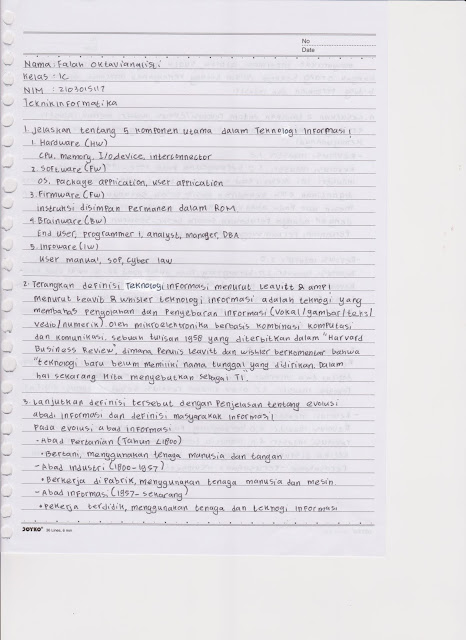 No
Date
Nama : Falah Oktavianalisti
Kelas : 1C
NIM : 2103015117
Teknik informatika
1. Jelaskan tentang 5 komponen utama dalam Teknologi Informasi !
1. Hardware (Hw)
CPU, memory, I/O device, interconnector
2. Software (Fw)
OS, Package application, user application
3. Firmware (Fw)
Instruksi disimpan permanen dalam ROM
4. Brainware (Bw)
End user, programmer 1, analyst, manager, DBA
5. Infoware (Iw)
User manual, SOP, cyber law
2. Terangkan definisi Teknologi informasi menurut Leavitt &
menurut Leavib & whisler teknologi informasi adalah teknogi yang
membahas pengolahan dan Penyebaran informasi (Vokal/gambar/teks/
vedio/numerik) oleh mikroelektronika berbasis kombinasi komputasi
dan komunikasi. sebuah tulisan 1958 yang diterbitkan dalam "Harvard
Business Review", dimana Penulis Leavitt dan wishler berkomentar bahwa
"teknologi baru belum memiliki nama tunggal yang didirikan. Dalam
hal sekarang Kita menyebutkan sebagai TI.
3. Lanjutkan definisi tersebut dengan Penjelasan tentang evolusi
abad informasi dan definisi masyarakak informasi !
Pada evolusi abad informasi
- Abad Pertanian (Tahun <1800)
• Bertani, menggunakan tenaga manusia dan tangan
- Abad Industri (1800-1957)
• Berkerja di Pabrik, menggunakan tenaga manusia dan mesin.
- Abad Informasi (1957- sekarang)
• Pekerja terdidik, menggunakan tenaga dan teknogi informasi
JOYKO 26 Lines, 8 mm